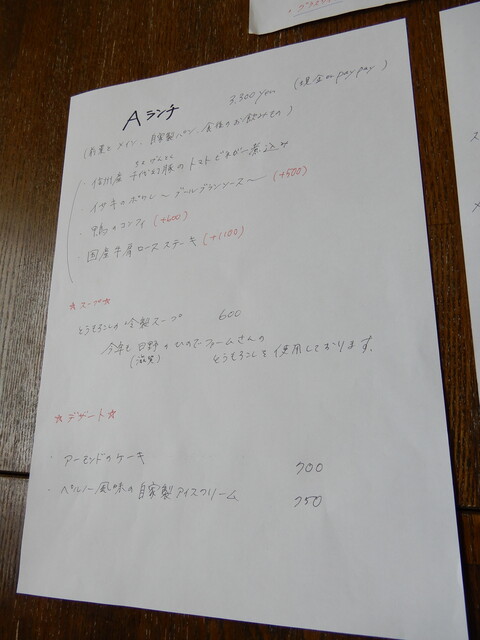 Aランチ 3,300yen (現金or paypay)
(前菜と メイン、自家製パン、食後のお飲みもの)
・信州産 千代幻豚のトマトビネガー煮込み
ちよ げんとん
・イサキのポワレ 〜ブールブランソース〜 (+500)
・鴨のコンフィ (+600)
・国産牛肩ロースステーキ (+1100)
☆スープ☆
とうもろこしの冷製スープ 600
今年も日野のひのでファームさんの
(滋賀) とうもろこしを使用しております。
☆デザート☆
・アーモンドのケーキ 700
・ペルノー風味の自家製アイスクリーム 750